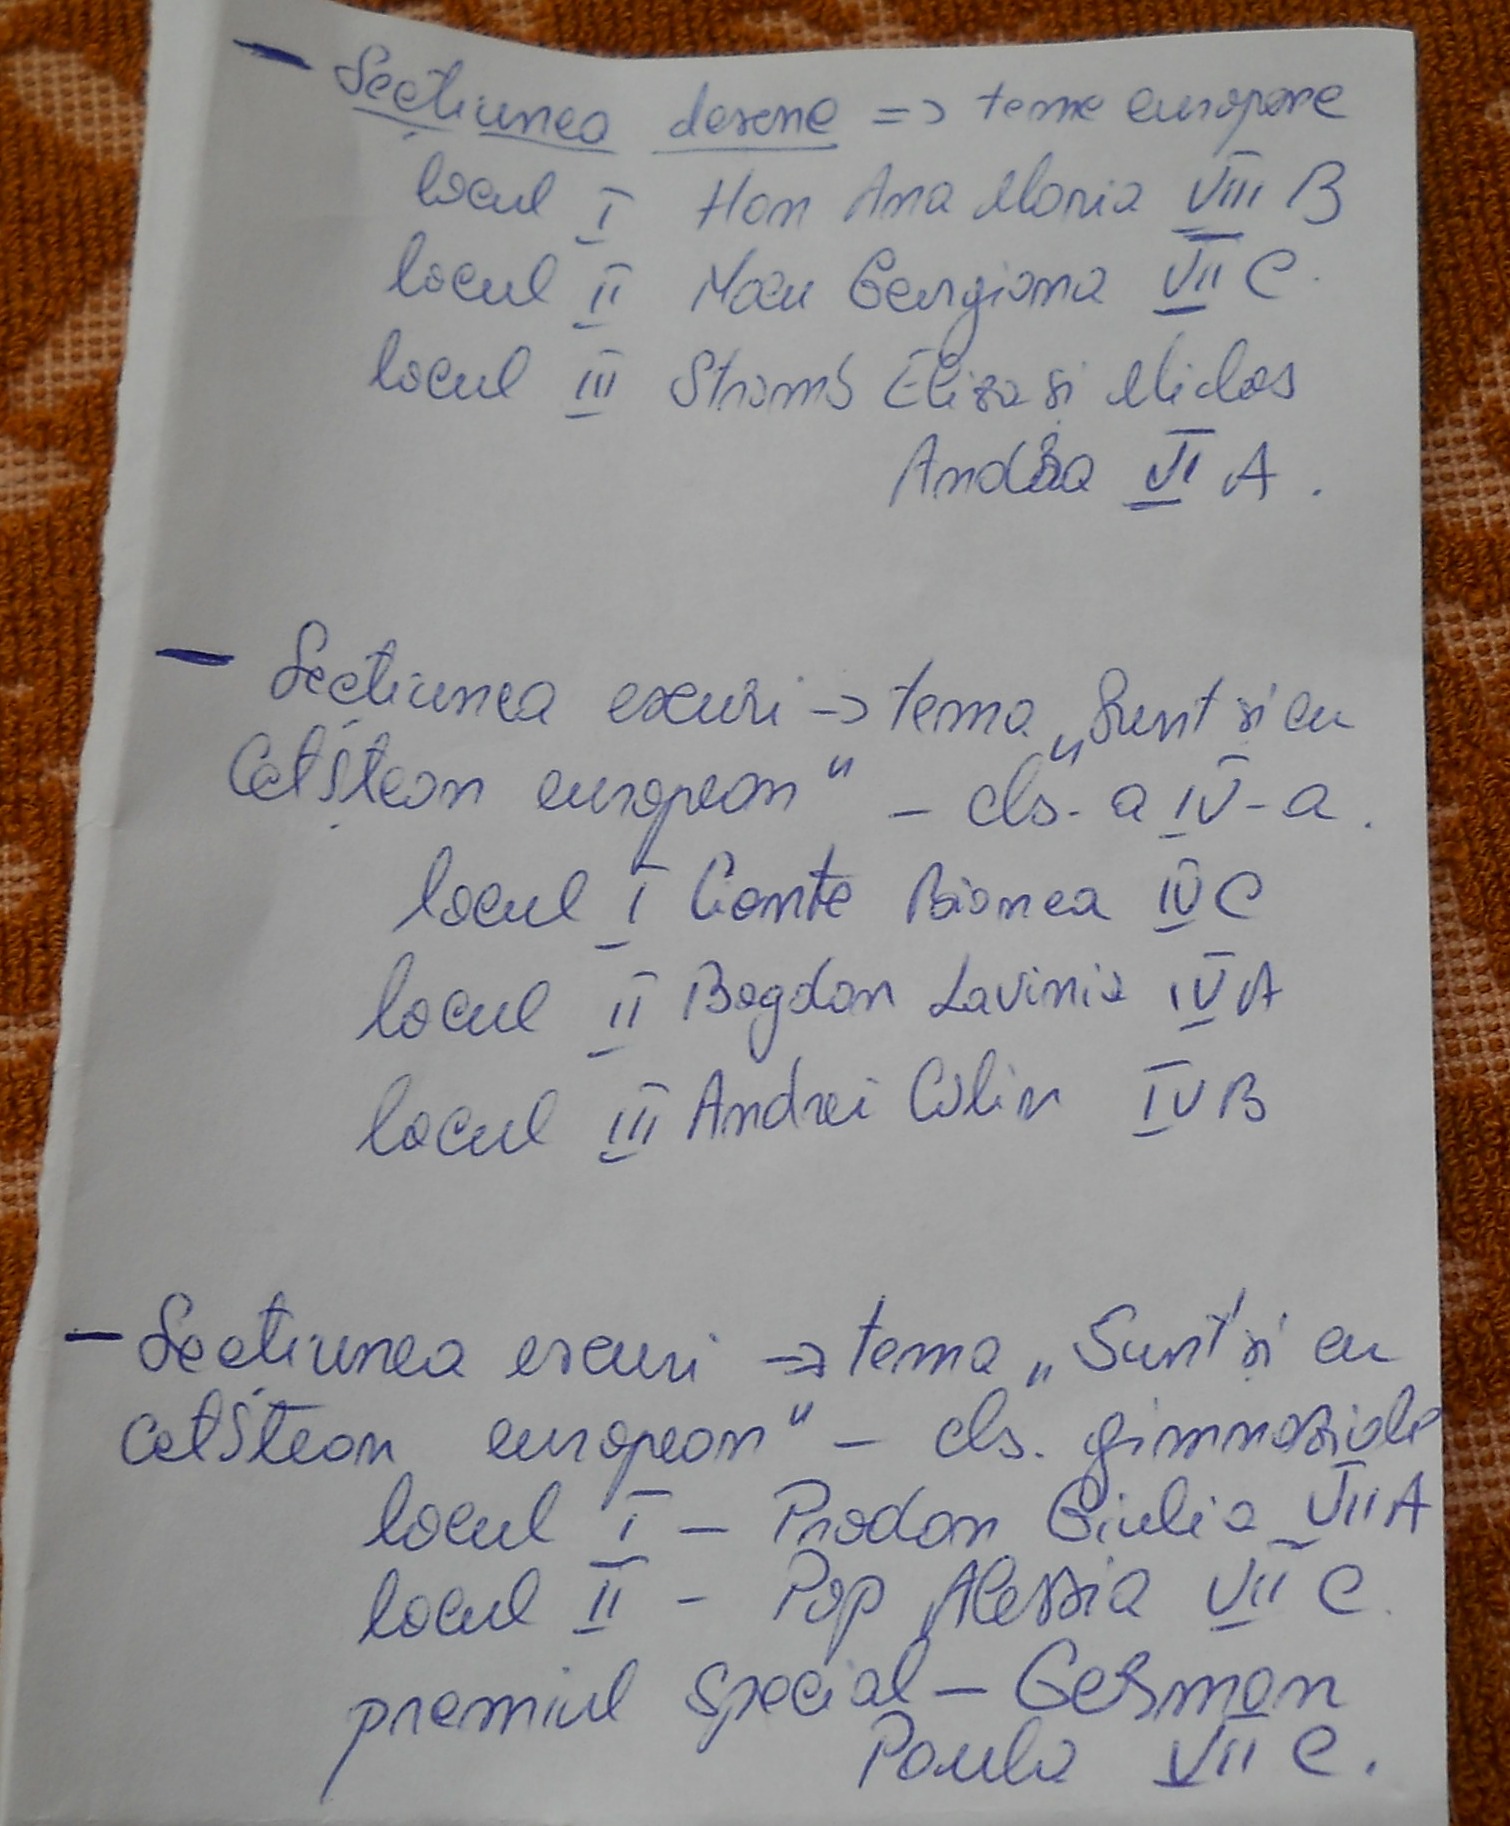 - Secțiunea desene => teme europene
locul I Han Ana Maria VIII B
locul II Macu Georgiana VII C.
locul III Stramb Eliza si Miclas
Andrea VI A.
- Secțiunea eseuri -> tema „Sunt si eu
Cetătean european" - cls. a IV-a.
locul I Conte Bianca IV C
locul II Bogdan Lavinia IV A
locul III Andrei Călin IV B
- Secțiunea eseuri => tema „Sunt si eu
Cetătean european" - cls. gimnaziale
locul I - Prodan Giulia VII A
locul II - Pop Alessia VII C.
premiul special - German
Paula VII C.